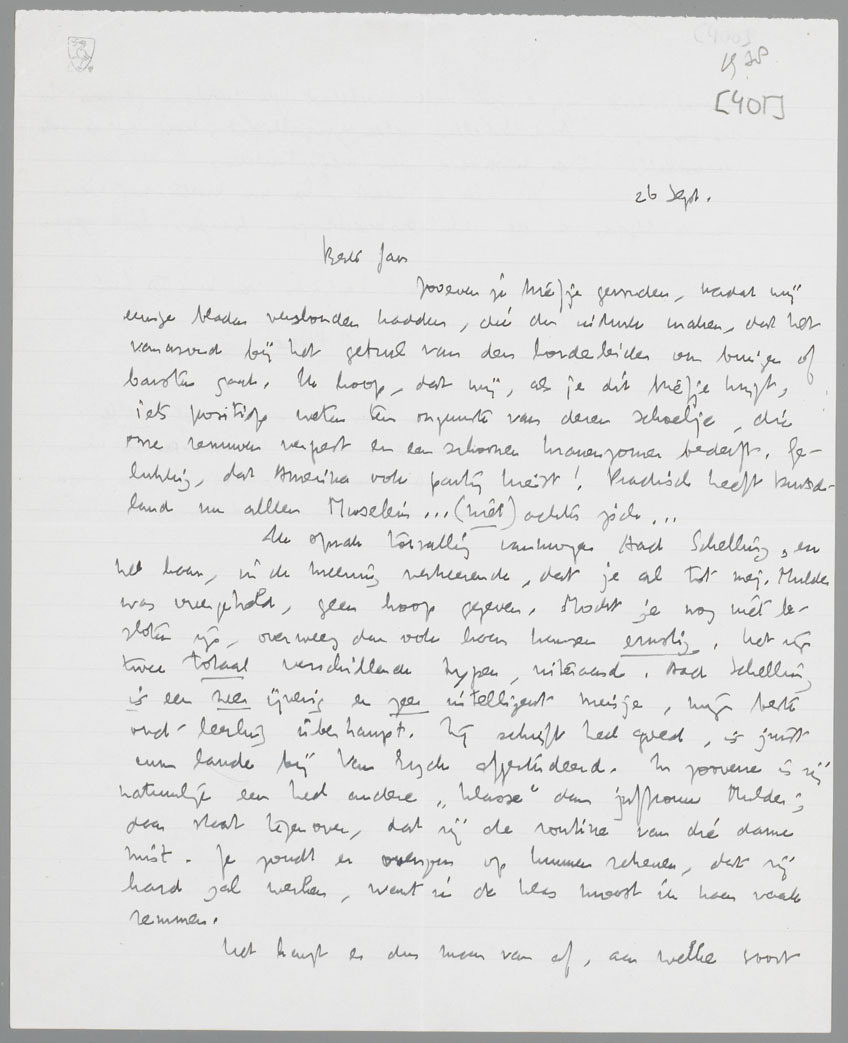 1938
[405]
26 Sept.
Beste Jan
Zoeven je briefje gevonden, nadat wij
eenige bladen verslonden hadden, die den indruk maken, dat het
vanavond bij het gebrul van den hordeleider om buigen of
barsten gaat. Ik hoop, dat wij, als je dit briefje krijgt,
iets positiefs weten ten ongunste van deren schoelje, die
onze zenuwen verpest en een schoonen nazomer bederft. Ge-
lukkig, dat Amerika ook partij kiest! Practisch heeft Duitsch-
land nu alleen Musselini ... (niet) achter zich ...
Ik sprak toevallig vanmorgen Aad Schelling, en
heb haar, in de meening verkeerende, dat je al tot mej. Mulder
was overgehaald, geen hoop gegeven. Mocht je nog niet be-
sloten zijn, overweeg dan ook haar kansen ernstig. Het zijn
twee totaal verschillende typen, uiteraard. Aad Schelling
is een zeer ijverig en zeer intelligent meisje, mijn beste
oud-leerling überhaupt. Zij schrijft heel goed, is juist
cum laude bij Van Eyck afgestudeerd. In zooverre is zij
natuurlijk een heel andere "klasse" dan juffrouw Mulder;
daar staat tegenover, dat zij de routine van die dame
mist. Je zoudt er overigens op kunnen rekenen, dat zij
hard zal werken, want in de klas moest ik haar vaak
remmen.
Het hangt er dus maar van af, aan welke soort